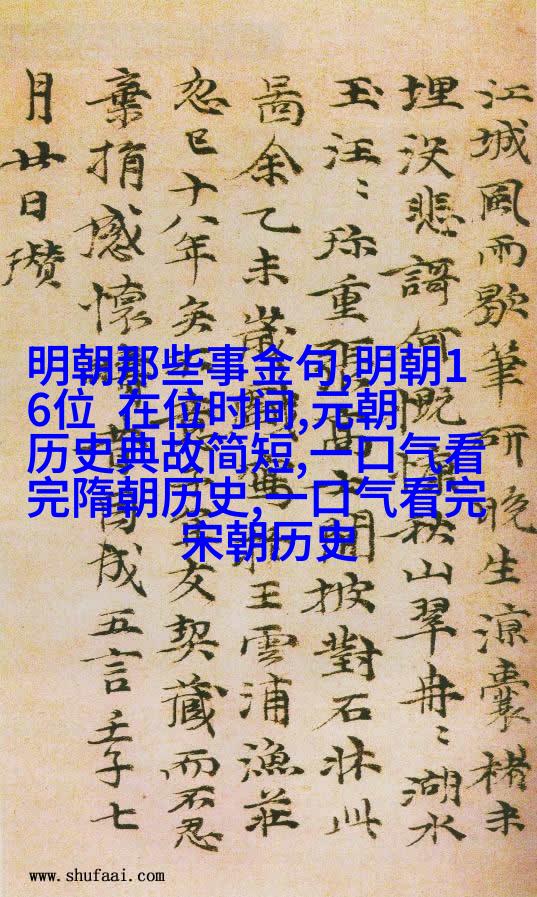 江城風雨歇筆研晚生涼囊楮未
埋没悲謌何慨慷秋山翠冉〻湖水
玉汪〻珎重張高士閒披對石牀此
啚余乙未歲戲寫於王雲浦漁莊
忽已十八年矣不意子宜友契藏而不忍
棄捐感懷疇昔因成五言壬子七
月廿日瓚
明朝那些事金句,明朝1
6位 在位时间,元朝
历史典故简短,一口气看
完隋朝历史,一口气看完
宋朝历史
www.shufaai.com